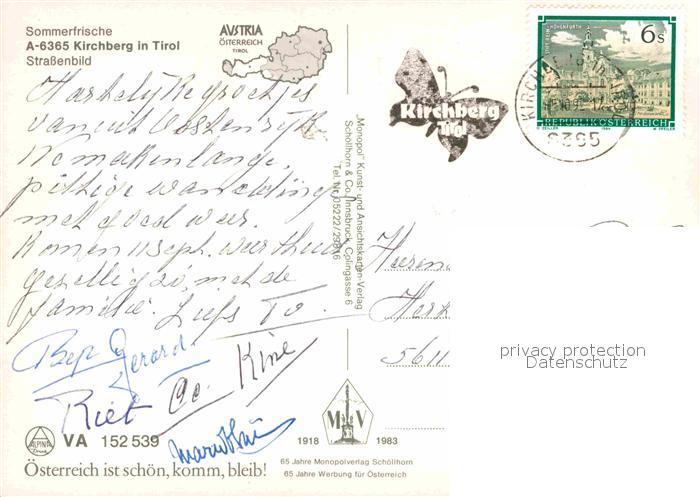 Sommerfrische
A-6365 Kirchberg in Tirol
Straßenbild
AVSTRIA
ÖSTERREICH
TIROL
Hartelijke groetjes
vanuit Oostenrijk
We maken lange,
pittige wandeling
met goed weer.
Komen 11 sept. weer thuis
gezellig zo, met de
familie. Liefs To.
Bep Gerard
Riet Co. Kine
ALPINA
Druck
VA 152 539
Österreich ist schön, komm, bleib!
„Monopol" Kunst- und Ansichtskarten-Verlag
Schöllhorn & Co., Innsbruck, Colingasse 6
Tel. Nr. 05222/23
Kirchberg
Tirol
STIFT HOHENFURTH
6 S
REPUBLIK ÖSTERREICH
O. ZEILLER 1984 W. PFEILER
KIRCHBERG
6365
Heeren
5611
privacy protection
Datenschutz
M V
1918 1983
65 Jahre Monopolverlag Schöllhorn
65 Jahre Werbung für Österreich